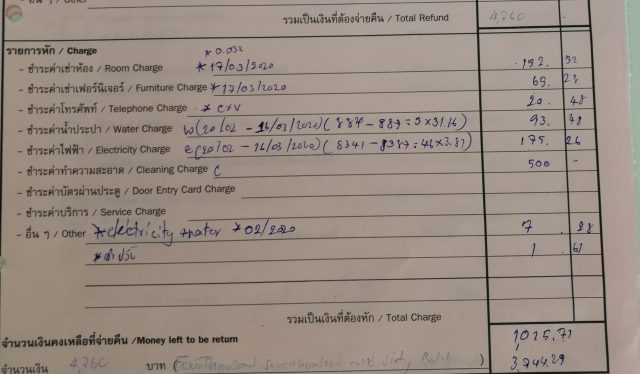 - อื่น ๆ / Other
รวมเป็นเงินที่ต้องจ่ายคืน / Total Refund 4,760 -
รายการหัก / Charge * 0.032
- ชำระค่าเช่าห้อง / Room Charge * 17/03/2020 152. 32
- ชำระค่าเช่าเฟอร์นิเจอร์ / Furniture Charge * 17/03/2020 65. 28
- ชำระค่าโทรศัพท์ / Telephone Charge 20. 48
- ชำระค่าน้ำประปา / Water Charge w(20/02 - 16/03/2020) ( 884 - 887 = 3 x 31.16) 93. 48
- ชำระค่าไฟฟ้า / Electricity Charge e(20/02 - 16/03/2020) ( 8341 - 8387 = 46 x 3.81) 175. 26
- ชำระค่าทำความสะอาด / Cleaning Charge c 500 -
- ชำระค่าบัตรผ่านประตู / Door Entry Card Charge
- ชำระค่าบริการ / Service Charge
- อื่น ๆ / Other * electricity mater * 02/2020 7 . 28
1 . 61
รวมเป็นเงินที่ต้องหัก / Total Charge 1015.71
จำนวนเงินคงเหลือที่จ่ายคืน / Money left to be return 3,744.29
จำนวนเงิน 4,760 บาท ( Four Thousand Seven Hundred and Sixty Baht )